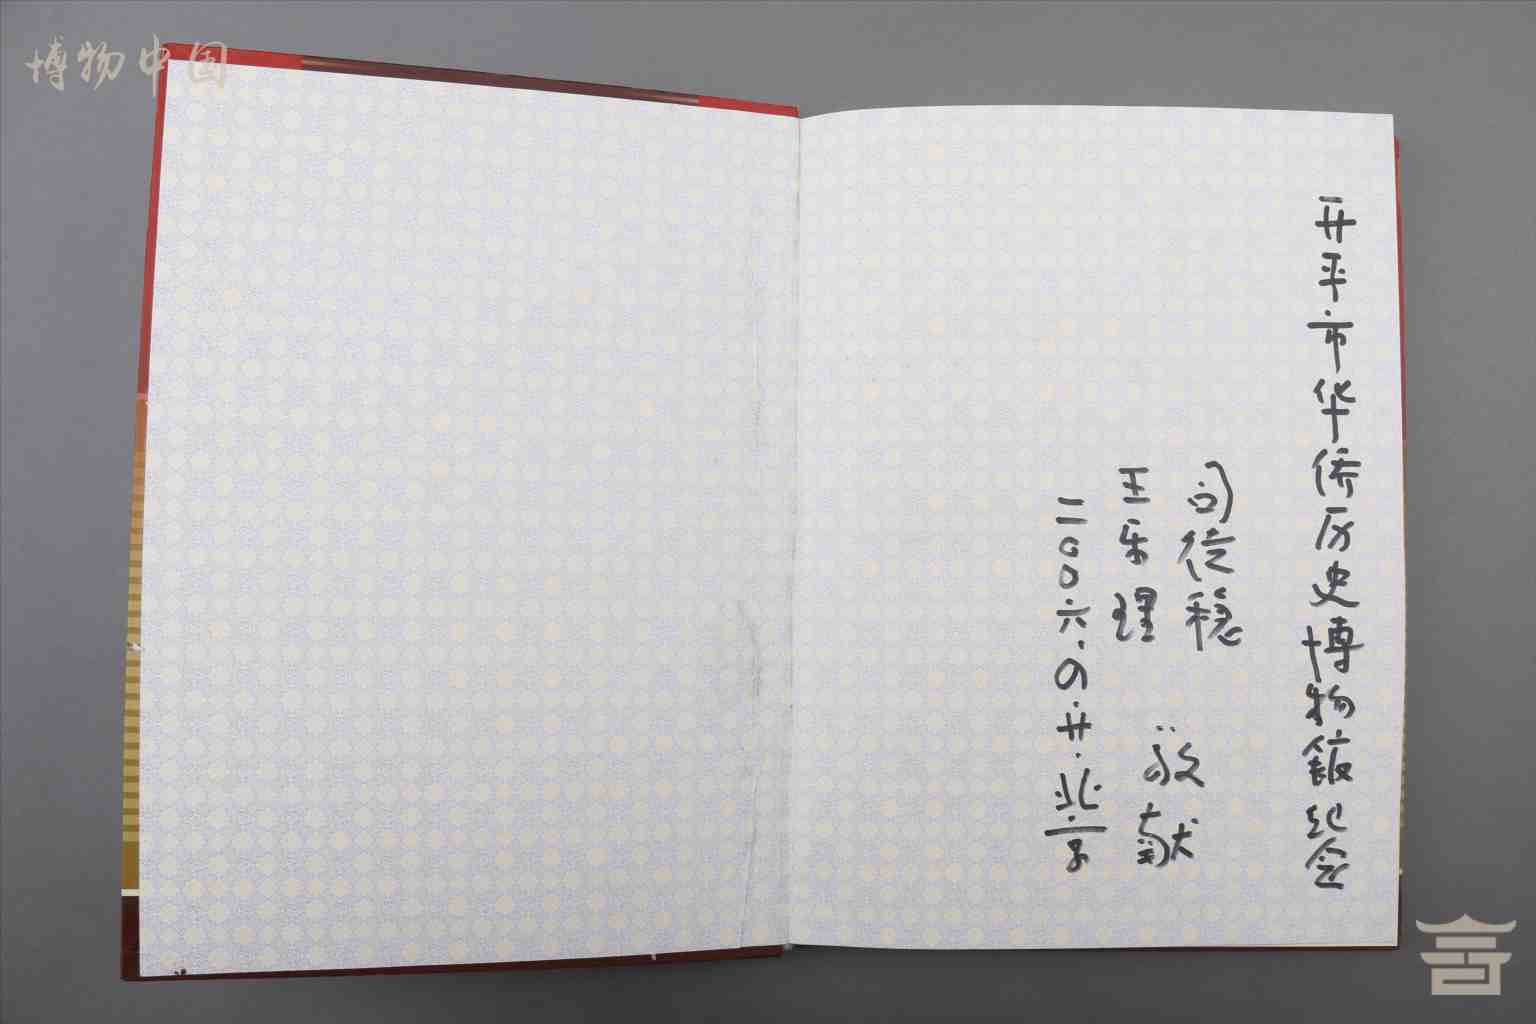 博物中国
开平市华侨历史博物馆纪念
司徒
王乐理
敬献
二〇〇六·四·廿·北京